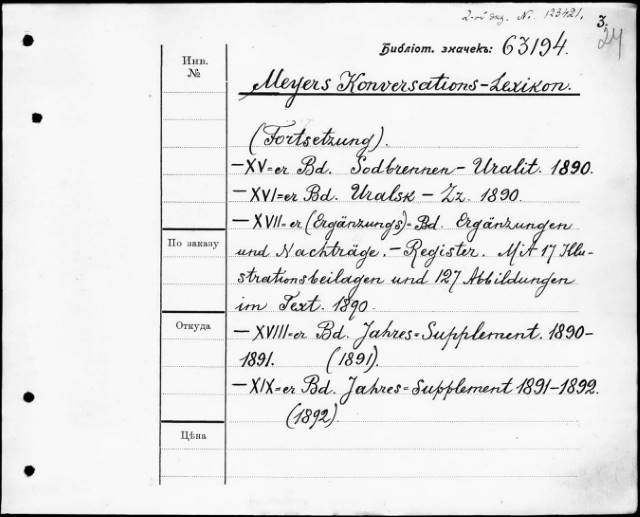 2-ой экз. № 123421.
3.
24
Библіот. значекъ: 63194.
Инв.
№
Meyers Konversations-Lexikon.
(Fortsetzung).
— XV=er Bd. Sodbrennen — Uralit. 1890.
— XVI=er Bd. Uralsk — Zz. 1890.
— XVII=er (Ergänzungs)=Bd. Ergänzungen
По заказу
und Nachträge. — Register. Mit 17 Illu-
strationsbeilagen und 127 Abbildungen
im Text. 1890.
Откуда
— XVIII=er Bd. Jahres=Supplement. 1890-
1891. (1891).
— XIX=er Bd. Jahres=Supplement 1891-1892.
(1892).
Цѣна